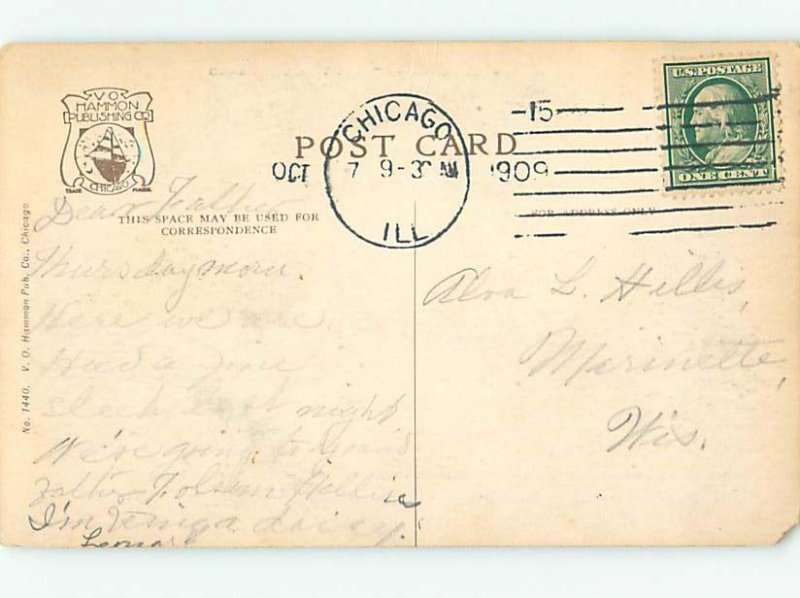 V.O.
HAMMON
PUBLISHING CO
CHICAGO
TRADE MARK
POST CARD
CHICAGO
ILL
OCT 7 9-30 AM 1909
15
U.S. POSTAGE
ONE CENT
THIS SPACE MAY BE USED FOR
CORRESPONDENCE
FOR ADDRESS ONLY
No. 1440. V. O. Hammon Pub. Co., Chicago
Dear Father
Thursday morn.
Here we are
Had a fine
sleep last night
We're going to
I'm a daisy.
Alva L. Hillis,
Marinette,
Wis.